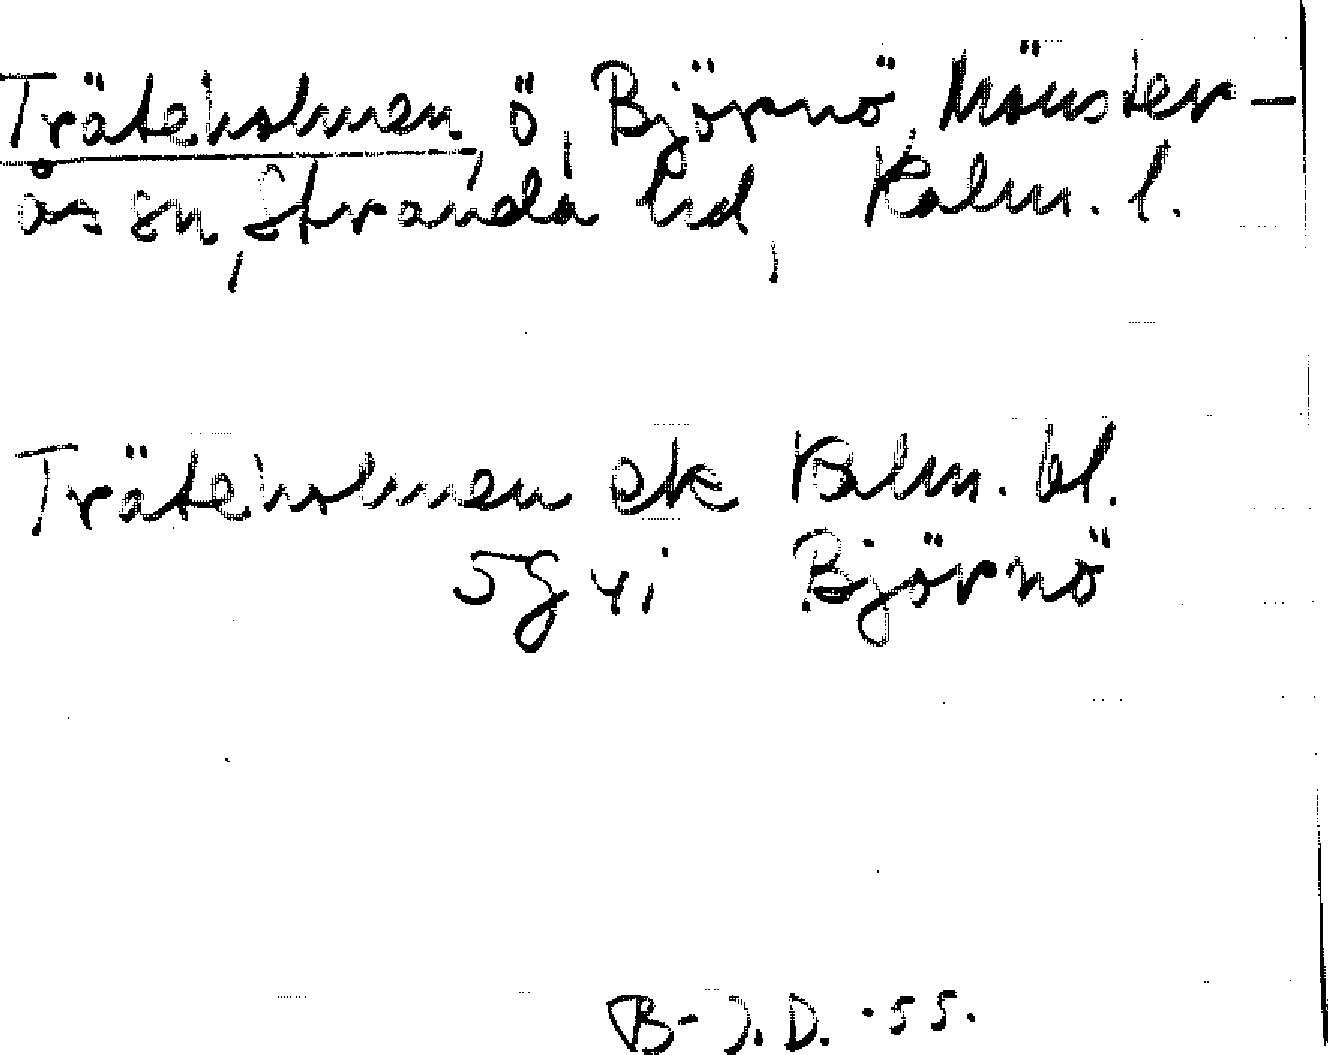 Träteholmen, ö, Björnö, Mönster-
ås sn, Stranda hd, Kalm. l.
Träteholmen ek Kalm. bl.
5g 4i Björnö
B-J.D. -55.